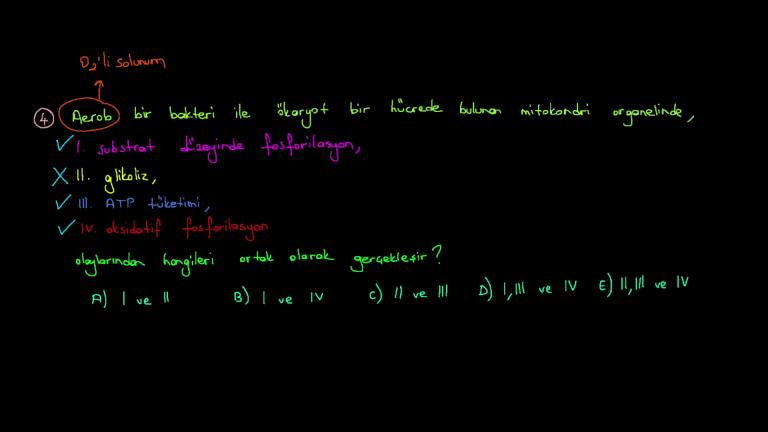 O₂'li solunum
4 Aerob bir bakteri ile ökaryot bir hücrede bulunan mitokondri organelinde,
I. substrat düzeyinde fosforilasyon,
II. glikoliz,
III. ATP tüketimi,
IV. oksidatif fosforilasyon
olaylarından hangileri ortak olarak gerçekleşir?
A) I ve II B) I ve IV C) II ve III D) I, III ve IV E) II, III ve IV